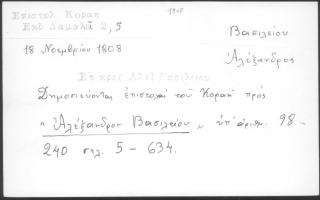 Ἐπιστολ Κοραῆ
Ἐκδ Δαμαλᾶ 2,5
1808
Βασιλείου
18 Νοεμβρίου 1808
Ἀλέξανδρος
Δημοσιεύονται ἐπιστολαὶ τοῦ Κοραῆ πρὸς
"Ἀλέξανδρον Βασιλείου" ὑπ' ἀριθμ. 98-
240 σελ. 5-634.